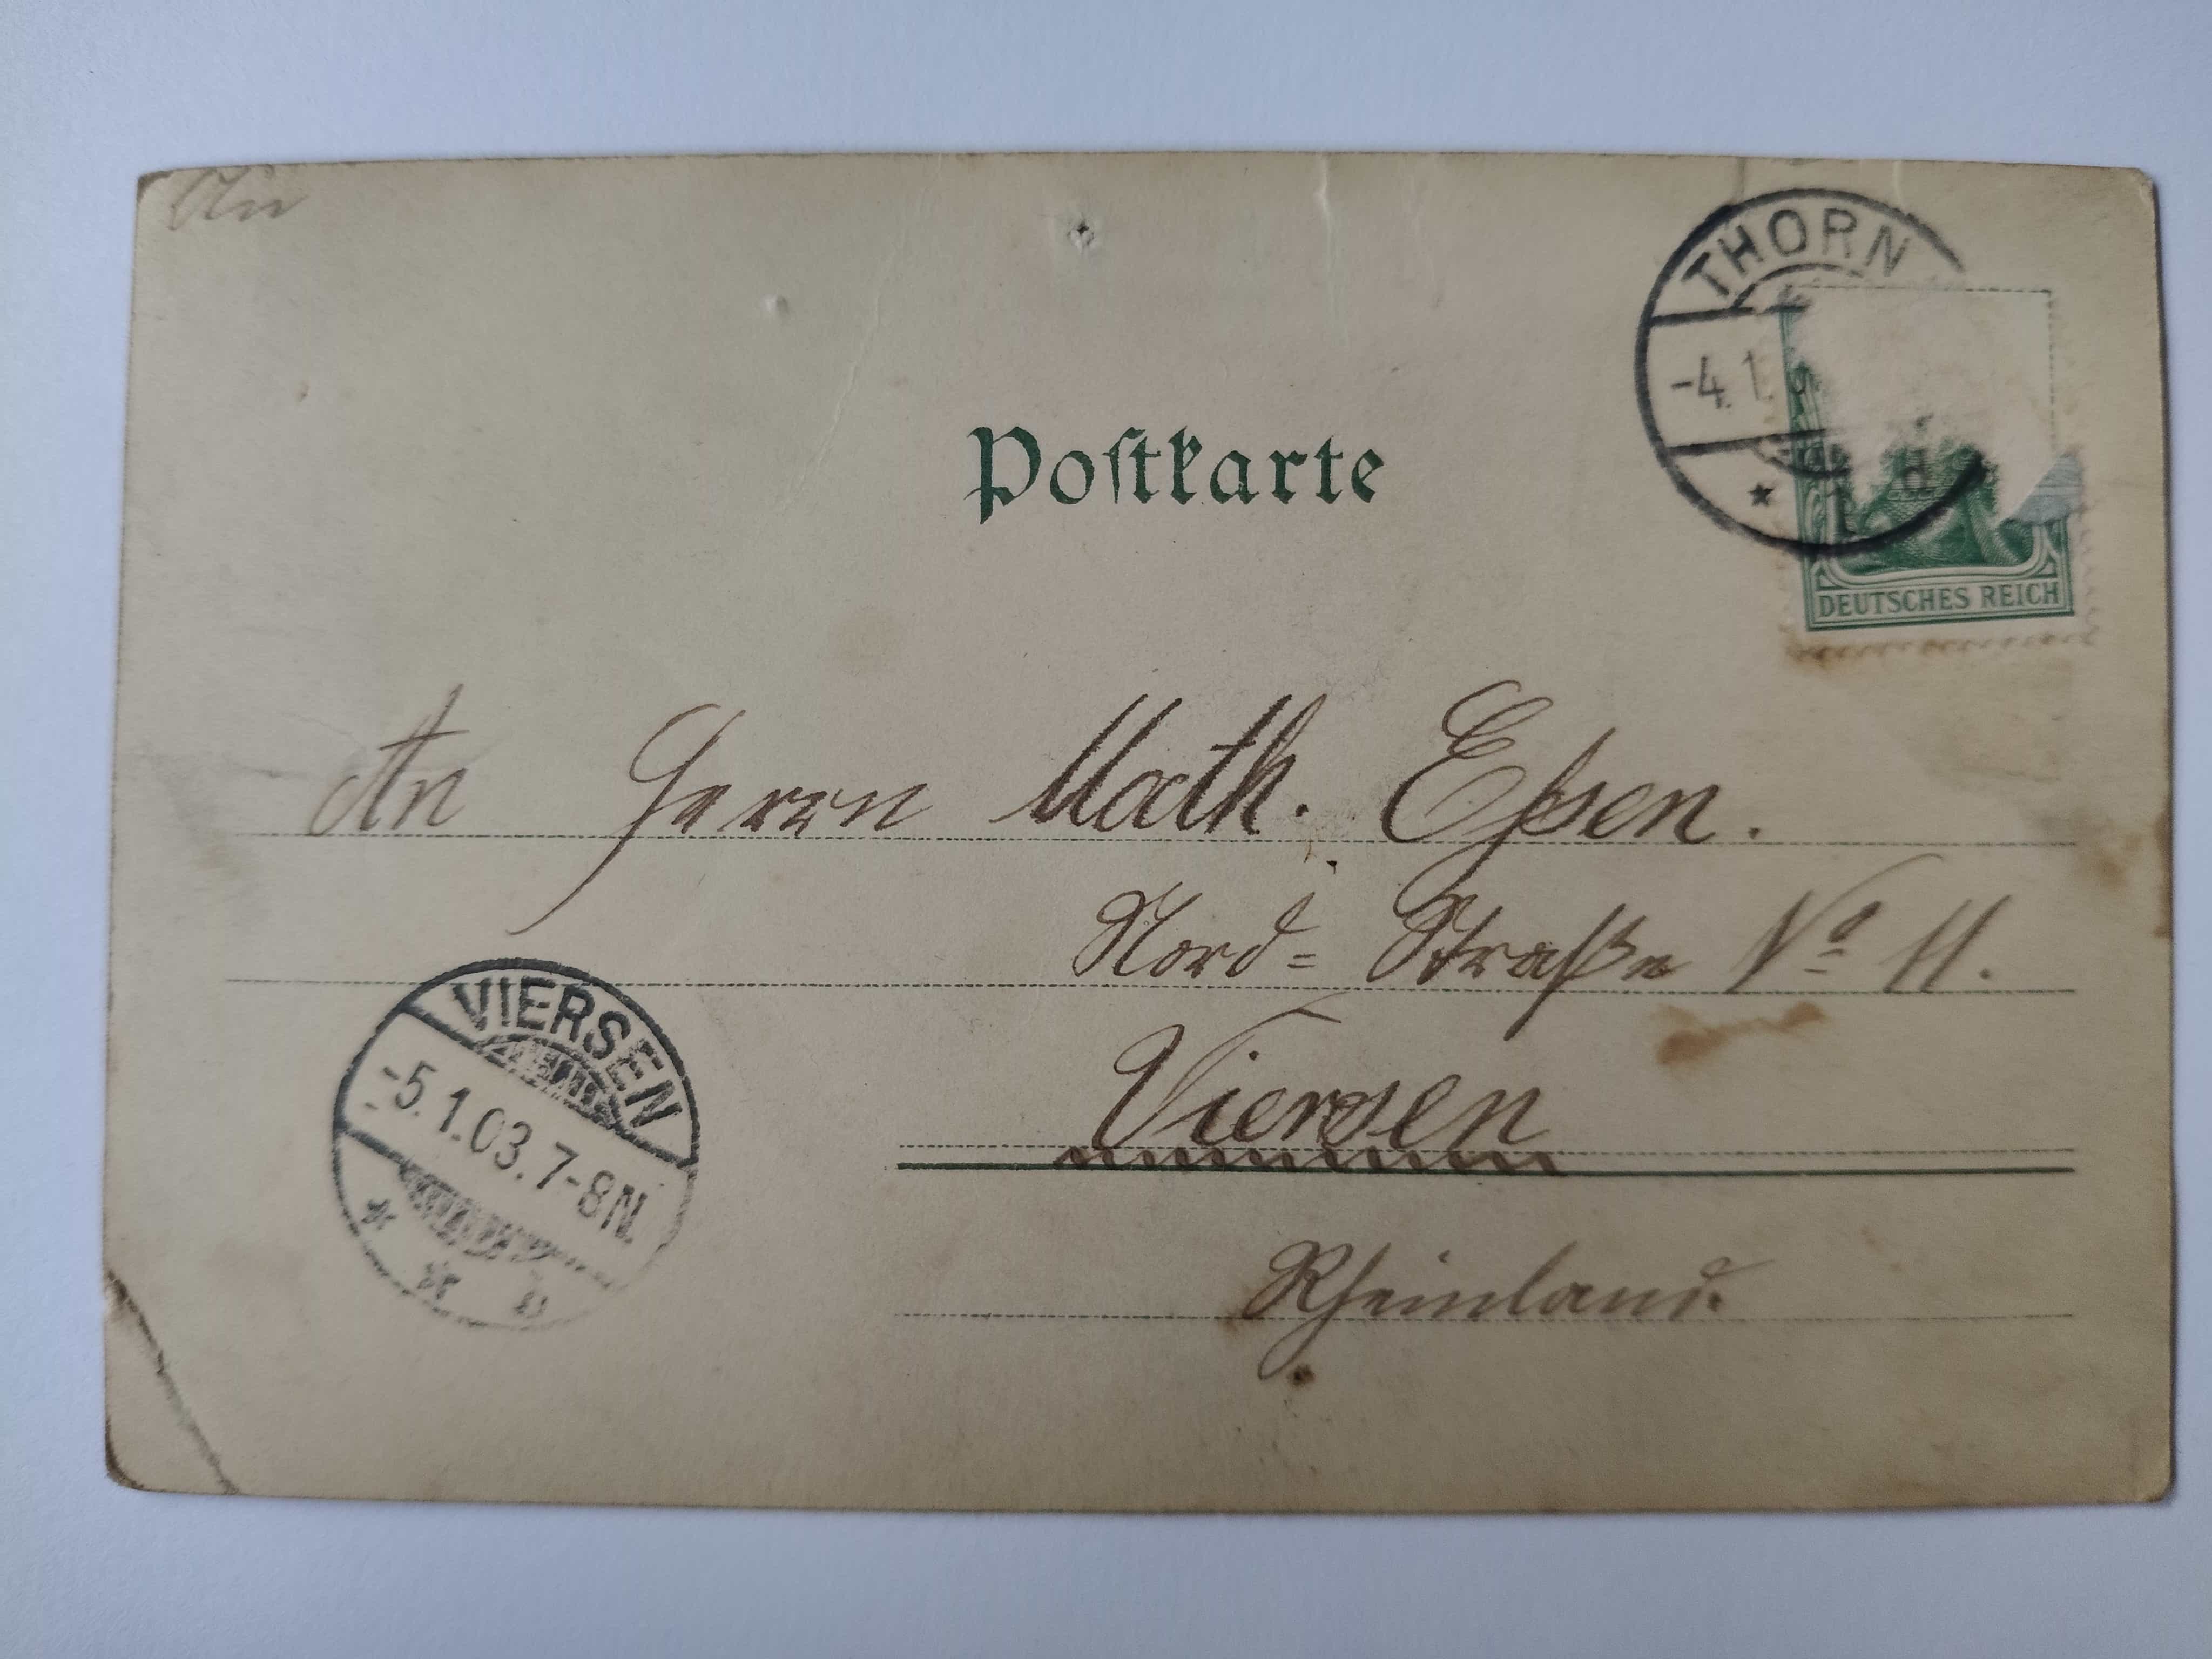 An
THORN
-4.1.
* 1 d
DEUTSCHES REICH
Poſtkarte
An Herrn Math. Eſsen.
Nord= Straße No 11.
Viersen
Rheinland.
VIERSEN
-5.1.03.7-8N.
* *